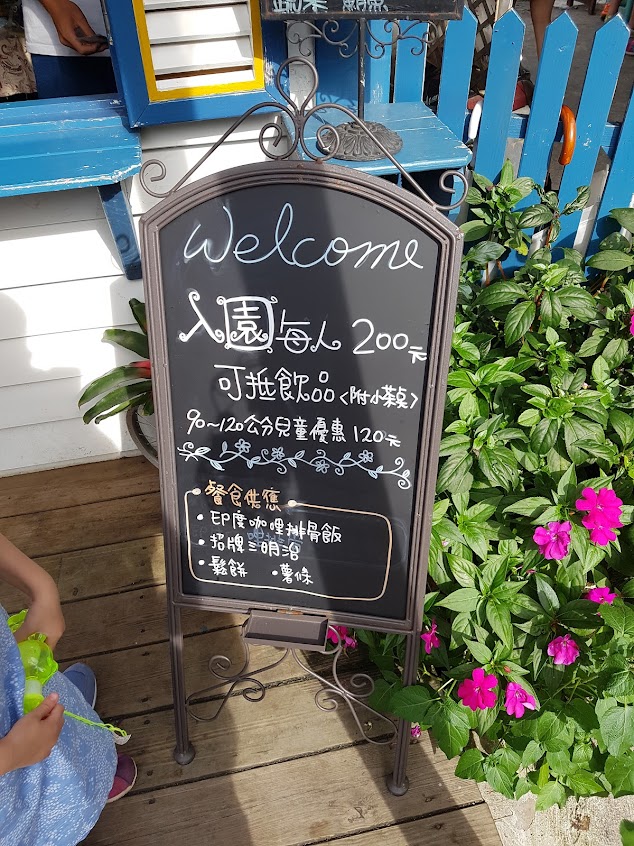 Welcome
入園每人 200元
可抵飲品〈附小茶点〉
90~120公分兒童優惠 120元
餐食供應
・印度咖哩排骨飯
・招牌三明治
・鬆餅 ・薯條